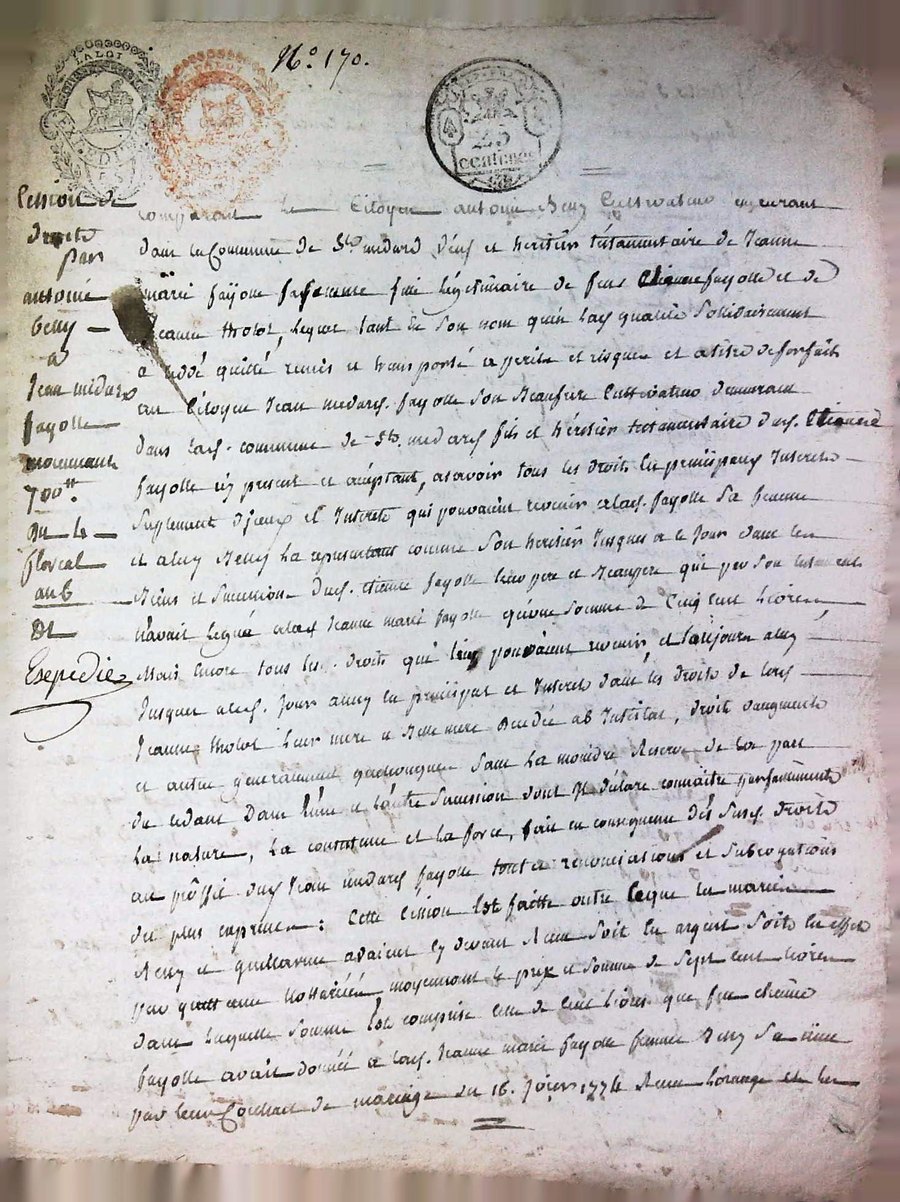 LA LOI
N.º 170.
25
centimes
Cession de
droits
par
antoine
beny
a
Jean medard
fayolle
moyennant
700tt
Du 4
floreal
an 6
Dt
Expedié
comparant le Citoyen antoine Beny Cultivateur demeurant
dans la Commune de St. medard veuf et heritier testamentaire de Jeanne
marie fayolle sa femme fille légitimaire de feus Etienne fayolle et de
Jeanne lequel tant de son nom qu'en lad. qualité solidairement
a cédé quitté remis et transporté a perils et risques et a titre de forfait
au Citoyen Jean medard fayolle son Beaufrere Cultivateur demeurant
dans lad. commune de St. medard fils et héritier testamentaire dud. Etienne
fayolle icy present et acceptant, a savoir tous les droits en principaux Interets
suplement d'iceux et Interets qui pouvaient revenir a lad. fayolle sa femme
et a luy Beny la representant comme son heritier Jusques a ce Jour dans les
Biens et succession dud. Etienne fayolle leur pere et Beaupere qui par son testament
n'avait legué a lad. Jeanne marie fayolle qu'une somme de Cinq cent livres,
Mais encore tous les droits qui leur pouvaient revenir, et toujours a luy
Jusques a ced. Jour aussy en principal et Interets dans les droits de lad.
Jeanne leur mere et Belle mere décédée ab Intestat, droit d'augment
et autres généralement quelconques sans la moindre Reserve de la part
du cedant dans l'une et l'autre succession dont Il déclare connaitre parfaitement
la nature, la consistance et la force, fait en consequence des susd. droits
au proffit dud. Jean medard fayolle toutes renonciations et subrogations
des plus expresses: Cette cession est faitte outre ce que les mariés
Beny et avaient cy devant Reçu soit en argent soit en effets
par quittance Nottariée, moyennant le prix et somme de sept cent livres
dans laquelle somme est comprise celle de cent livres que feu etienne
fayolle avait donnée a lad. Jeanne marie fayolle femme Beny sa
par leur Contrat de mariage du 16. 1774 Reçu et les